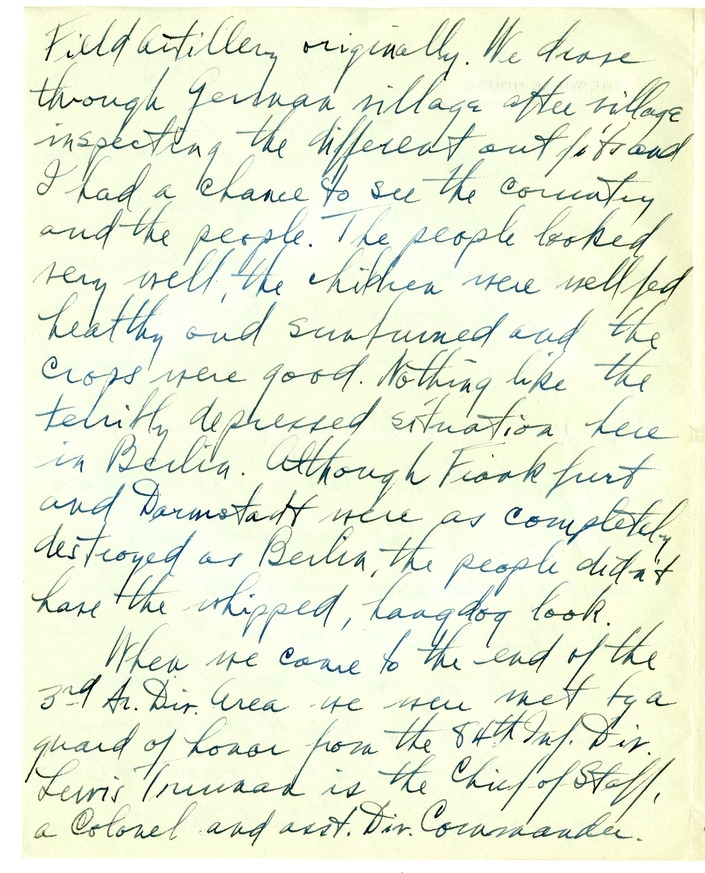 Field Artillery originally. We drove
through German village after village
inspecting the different outfits and
I had a chance to see the country
and the people. The people looked
very well, the children were well fed
healthy and sunburned and the
crops were good. Nothing like the
terribly depressed situation here
in Berlin. Although Frankfurt
and Darmstadt were as completely
destroyed as Berlin, the people didn't
have the whipped, hangdog look.
When we came to the end of the
3rd Ar. Div. area we were met by a
guard of honor from the 84th Inf. Div.
Lewis Truman is the Chief of Staff,
a Colonel and asst. Div. Commander.